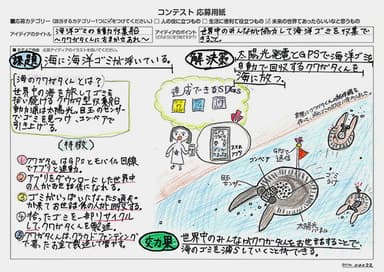 コンテスト 応募用紙
■応募カテゴリー（該当するカテゴリー1つに✓を付けてください）
□ 人の役に立つもの
□ 生活に便利で役立つもの
☑ 未来の世界であったらいいなと思うもの
アイディアのタイトル
海洋ゴミの自動収集船
〜クワガタくんにおまかせあれ〜
アイディアのポイント
世界中のみんなが協力して海洋ゴミを収集で
きること。
課題
海に海洋ゴミが浮いている。
解決策
太陽光発電とGPSで海洋ゴミを
自動で回収するクワガタくんを
海に放つ。
海のクワガタくんとは?
世界中の海を旅してゴミを
拾い続けるクワガタ型収集船
動力源は太陽光。目玉のセンサー
でゴミを見つけ、コンベアで
引き上げる。
達成できるSDGs
(特徴)
① クワガタくんはGPSとモバイル回線
でアプリと連動。
② アプリをダウンロードした世界中
の人がお世話係になれる。
③ ゴミがいっぱいになったら通知
が来てお世話係の人が回収する。
④ 拾ったゴミを一部リサイクル
してクワガタくんを製造。
⑤ クワガタくんはクラウドファンディング
で募ったお金で製造し管理する。
GPSで
送信
コンベア
目玉
センサー
太陽光
パネル
効果
世界中のみんながクワガタくんをお世話することで、
海のゴミを減らしていくことができる。